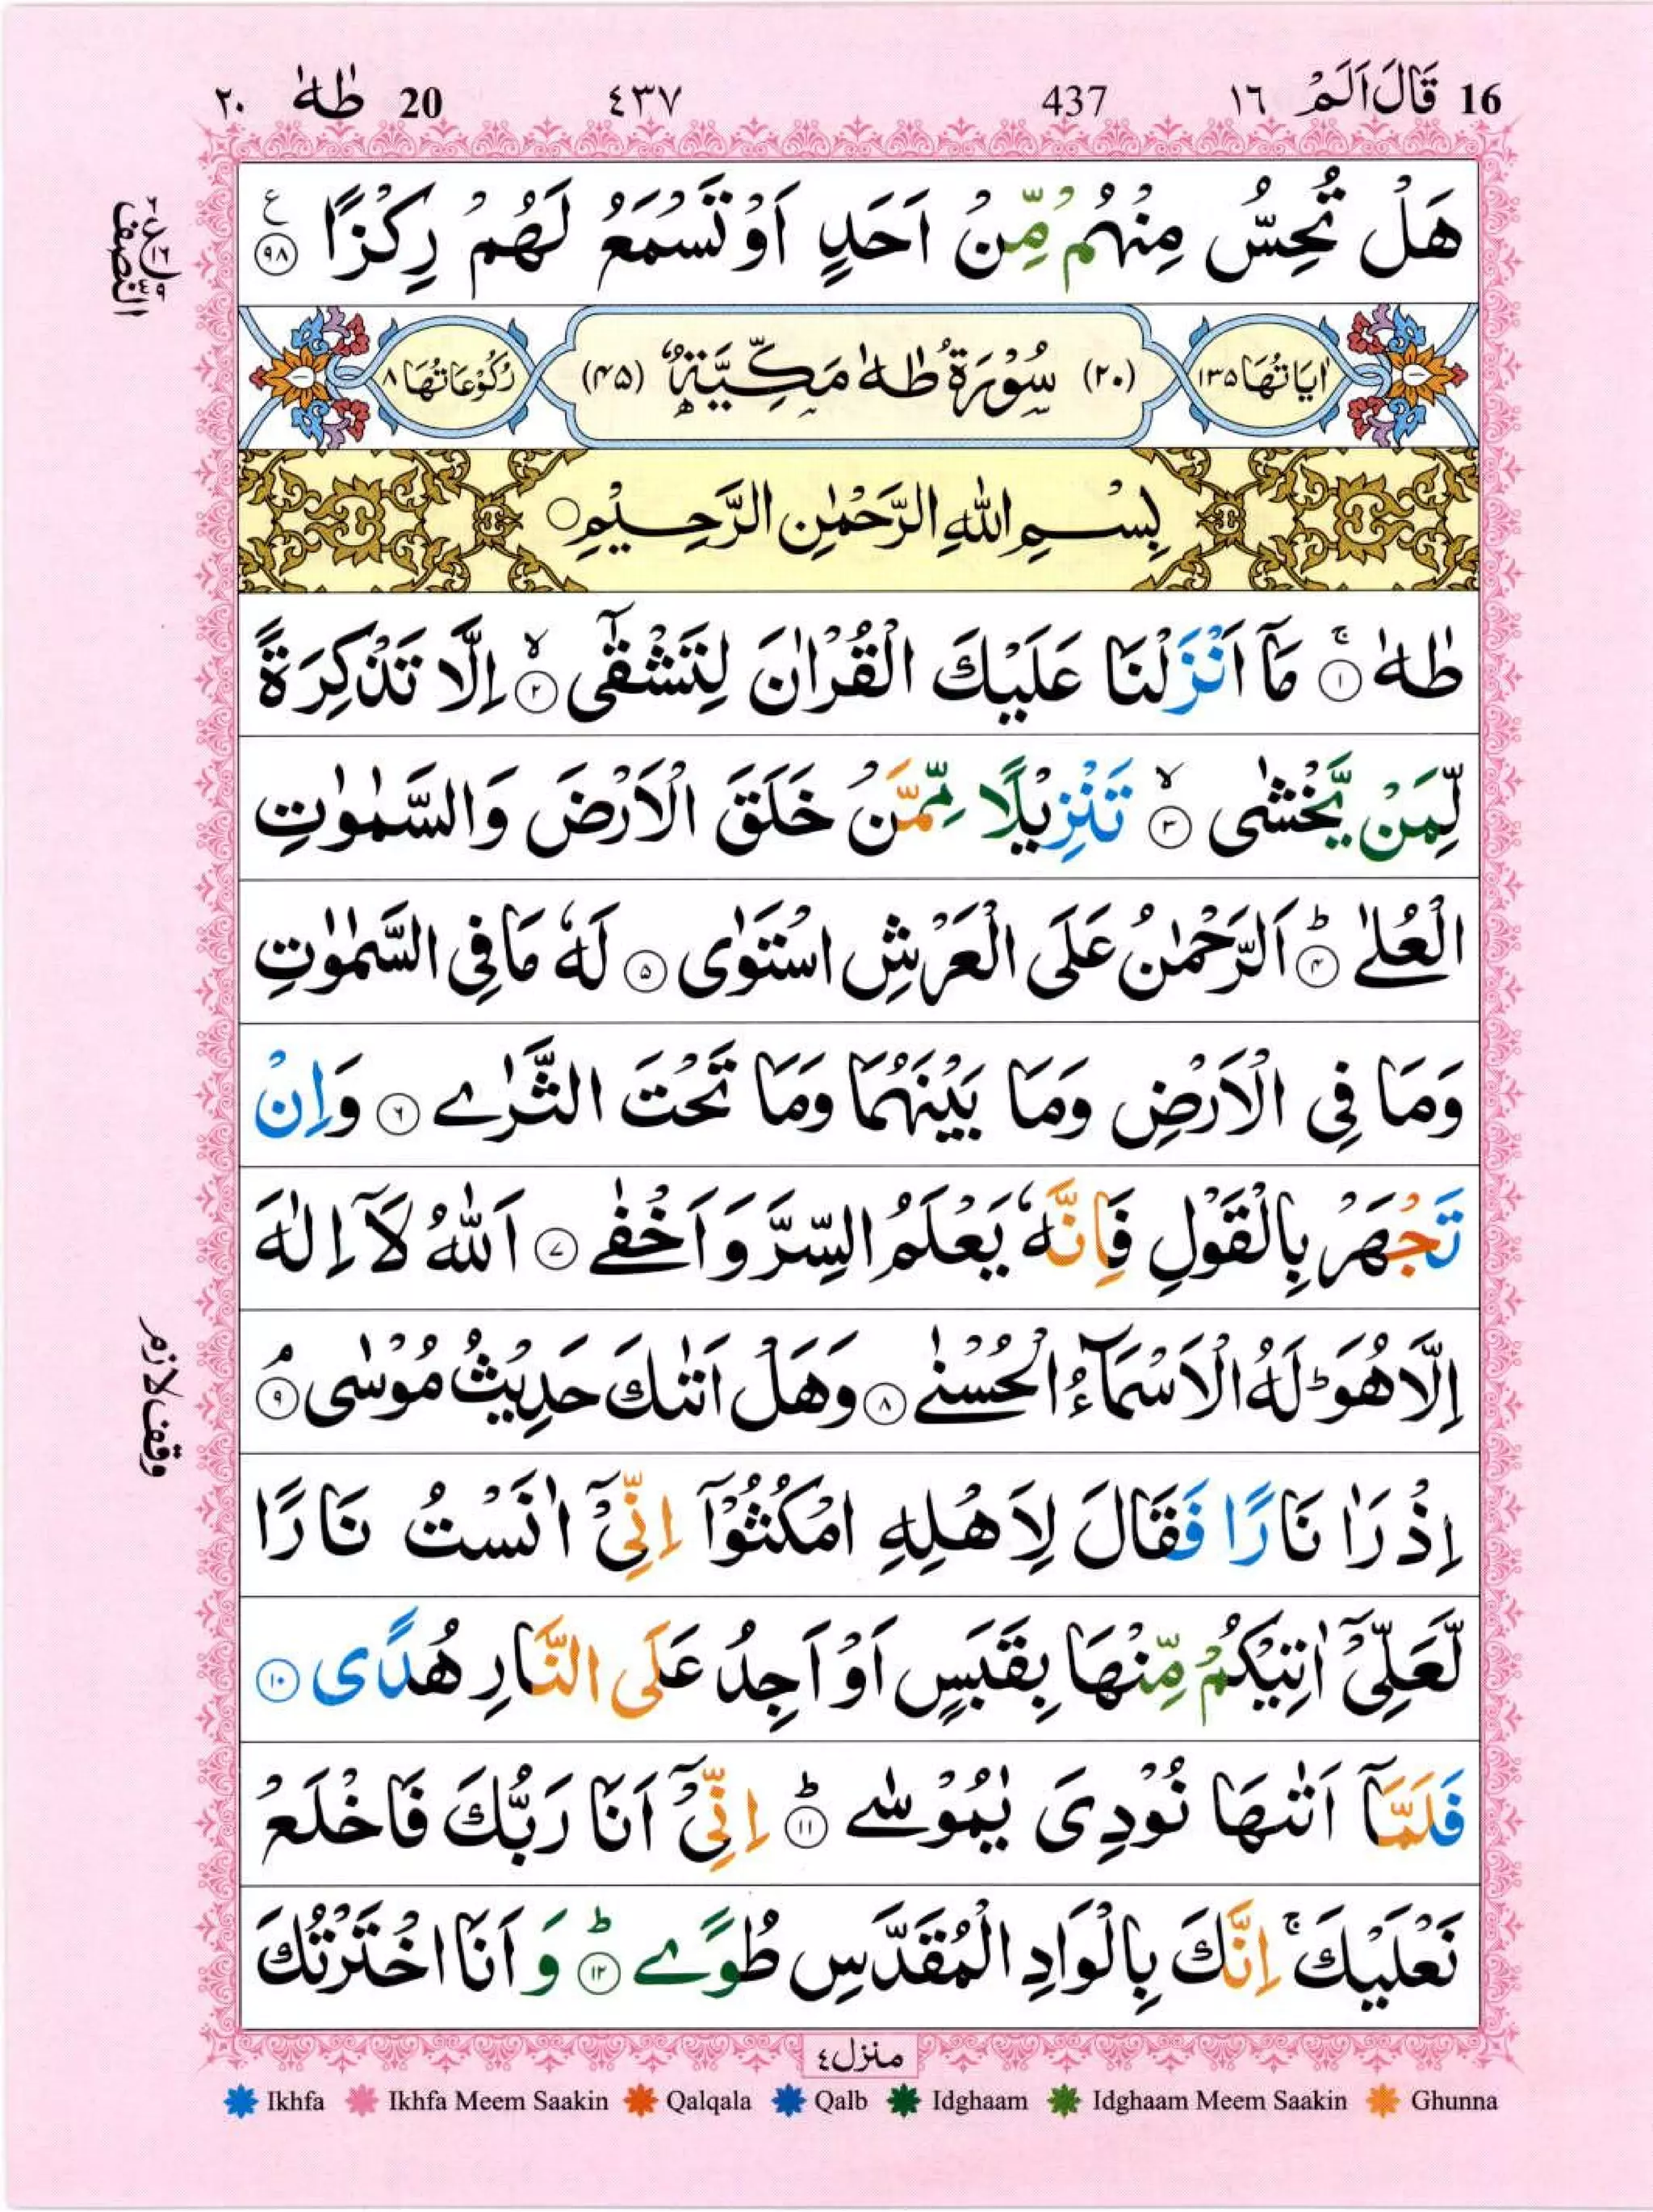 16 قَالَ اَلَمْ ١٦ 437 ٤٣٧ 20 طٰهٰ ٢٠
هَلْ تُحِسُّ مِنْهُمْ مِّنْ اَحَدٍ اَوْ تَسْمَعُ لَهُمْ رِكْزًا ۹۸ ع
النصف
اٰيَاتُهَا ١٣٥ (٢٠) سُوْرَةُ طٰهٰ مَكِّيَّةٌ (۴۵) رُكُوْعَاتُهَا ٨
بِسْمِ اللّٰهِ الرَّحْمٰنِ الرَّحِيْمِ
طٰهٰ ۚ ۱ مَاۤ اَنْزَلْنَا عَلَيْكَ الْقُرْاٰنَ لِتَشْقٰٓى ۙ ۲ اِلَّا تَذْكِرَةً
لِّمَنْ يَّخْشٰى ۙ ۳ تَنْزِيْلًا مِّمَّنْ خَلَقَ الْاَرْضَ وَالسَّمٰوٰتِ
الْعُلٰى ؕ ۴ اَلرَّحْمٰنُ عَلَى الْعَرْشِ اسْتَوٰى ۵ لَهٗ مَا فِى السَّمٰوٰتِ
وَمَا فِى الْاَرْضِ وَمَا بَيْنَهُمَا وَمَا تَحْتَ الثَّرٰے ۶ وَاِنْ
تَجْهَرْ بِالْقَوْلِ فَاِنَّهٗ يَعْلَمُ السِّرَّ وَاَخْفٰے ۷ اَللّٰهُ لَاۤ اِلٰهَ
اِلَّا هُوَ ؕ لَهُ الْاَسْمَآءُ الْحُسْنٰے ۸ وَهَلْ اَتٰىكَ حَدِيْثُ مُوْسٰى ۘ ۹
وقف لازم
اِذْ رَاٰ نَارًا فَقَالَ لِاَهْلِهِ امْكُثُوْۤا اِنِّىْۤ اٰنَسْتُ نَارًا
لَّعَلِّىْۤ اٰتِيْكُمْ مِّنْهَا بِقَبَسٍ اَوْ اَجِدُ عَلَى النَّارِ هُدًى ۱۰
فَلَمَّاۤ اَتٰىهَا نُوْدِىَ يٰمُوْسٰے ؕ ۱۱ اِنِّىْۤ اَنَا رَبُّكَ فَاخْلَعْ
نَعْلَيْكَ ۚ اِنَّكَ بِالْوَادِ الْمُقَدَّسِ طُوًے ؕ ۱۲ وَاَنَا اخْتَرْتُكَ
منزل ٤
Ikhfa Ikhfa Meem Saakin Qalqala Qalb Idghaam Idghaam Meem Saakin Ghunna